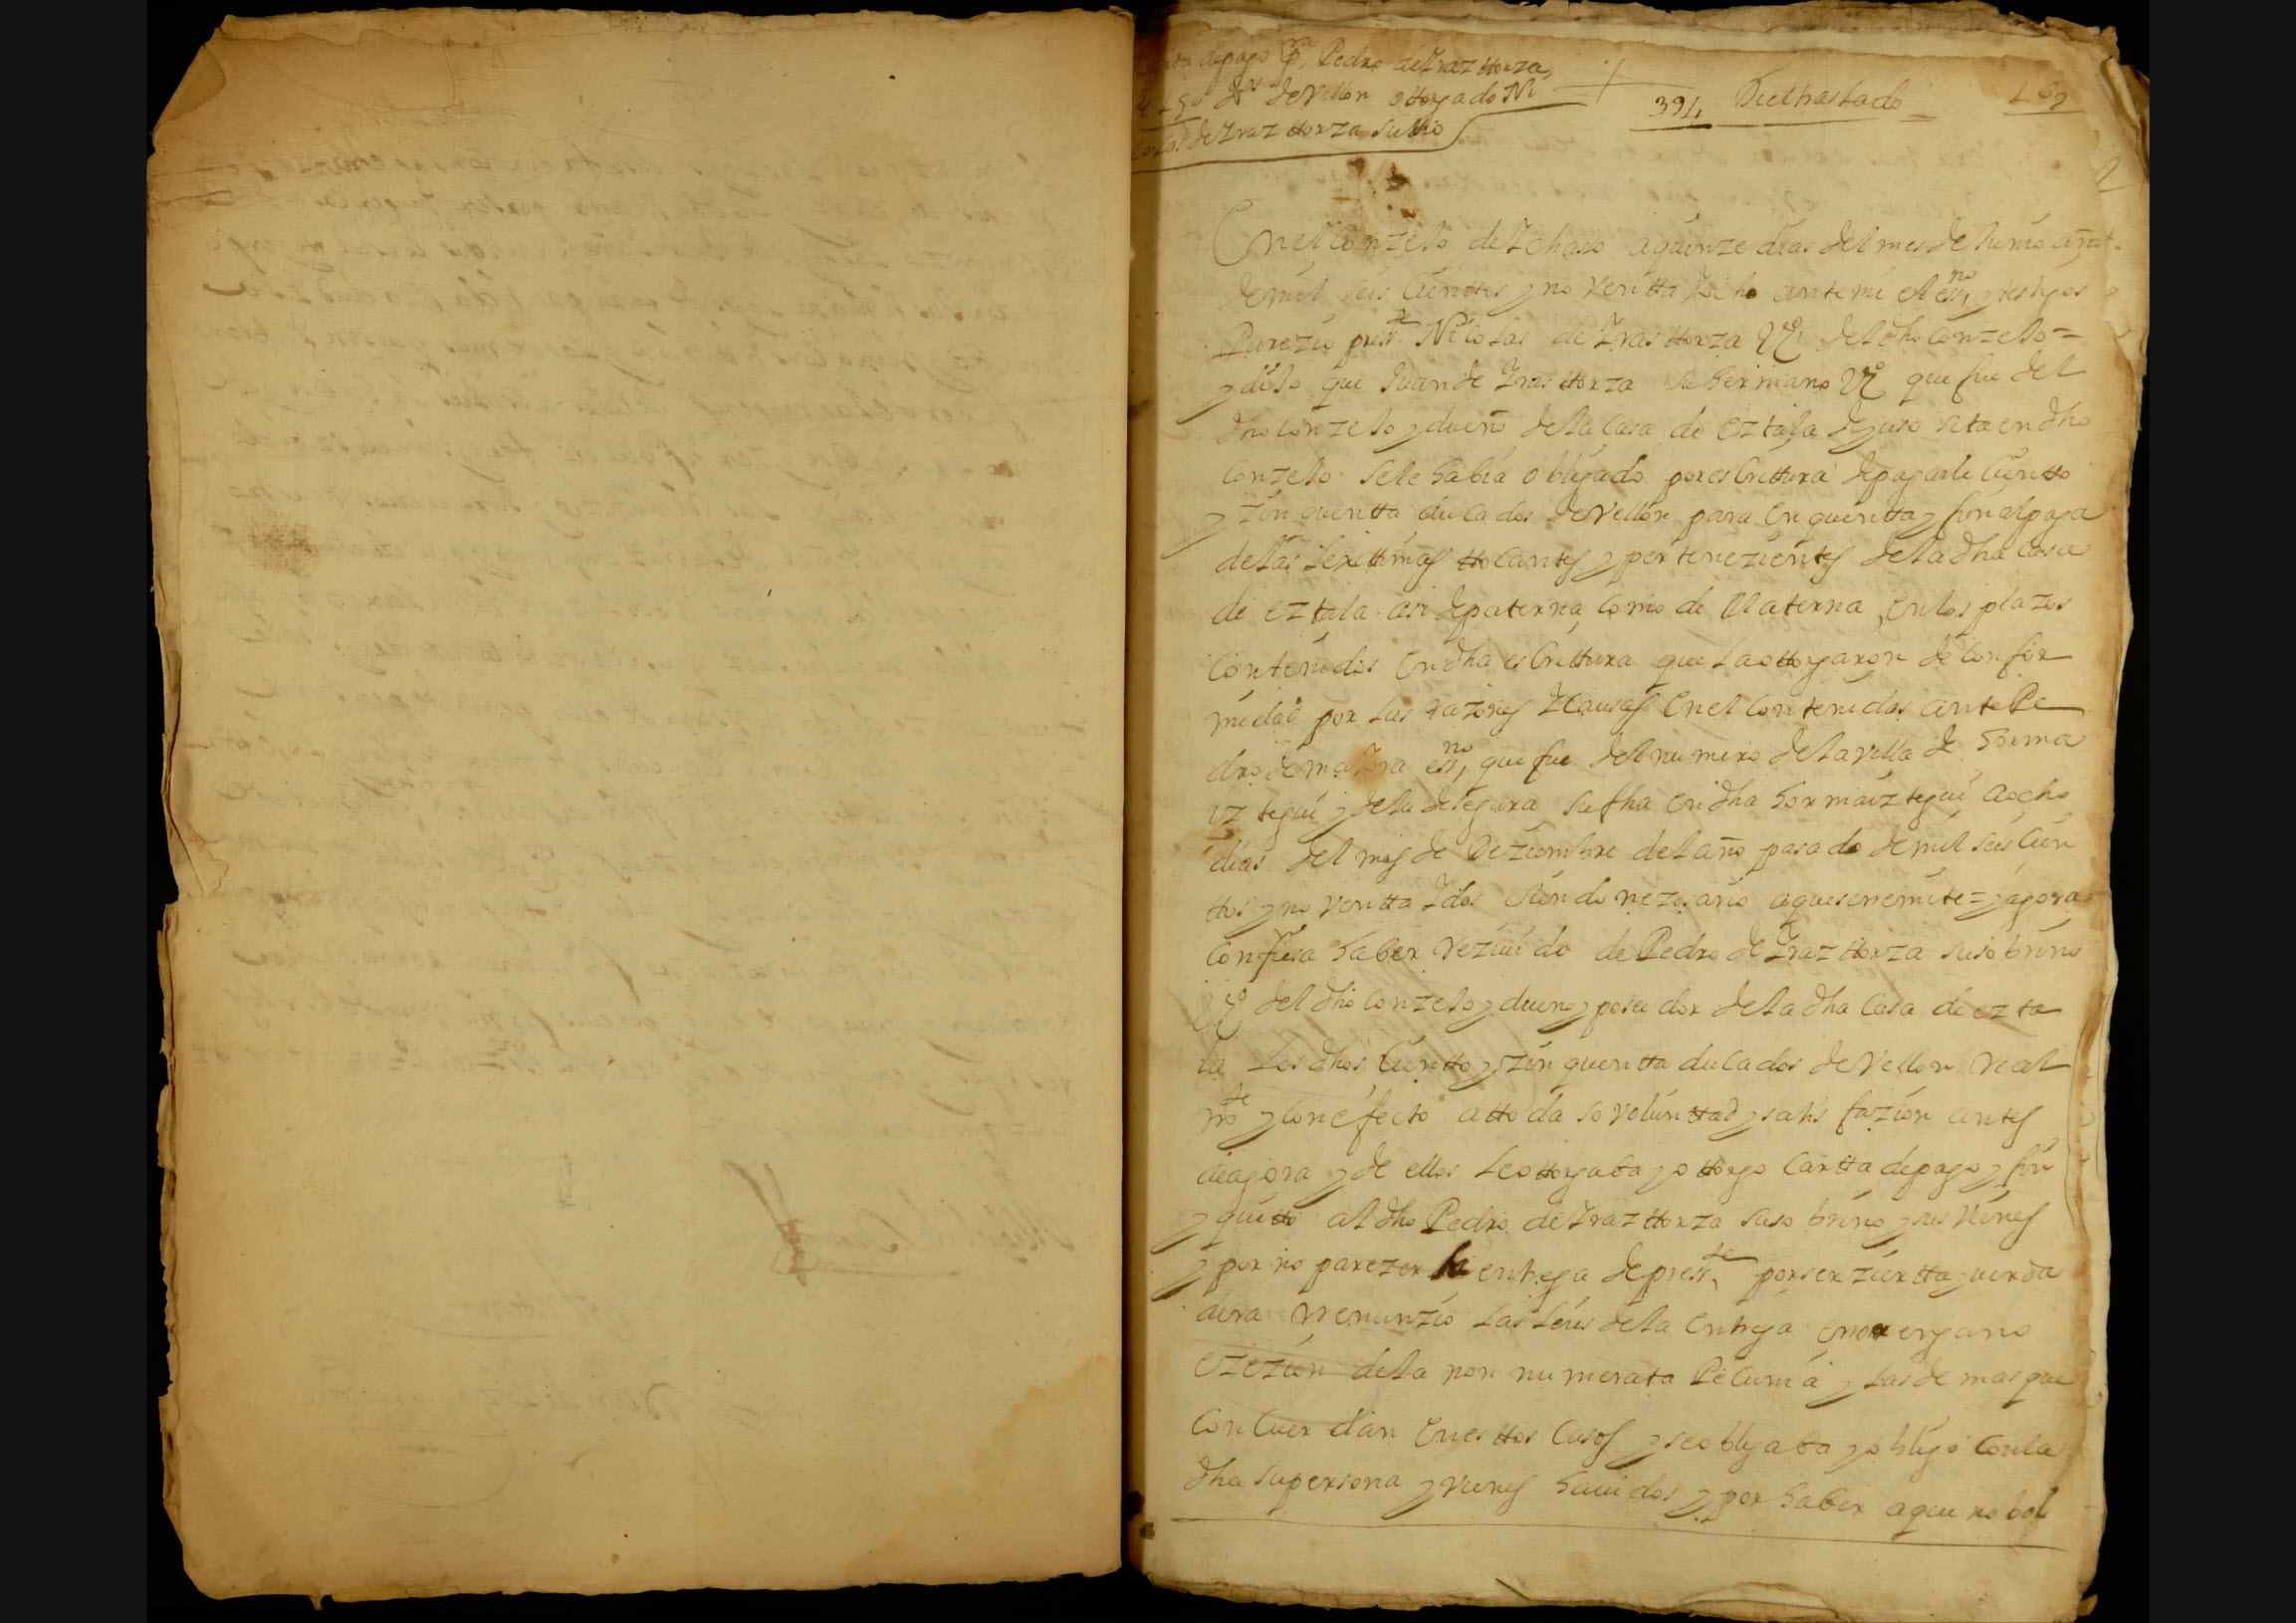 Carta de pago pª Pedro de Yraztorza
de 150 ds de vellon ottorgado Ni
colas de Yraztorza su tio
394 Diel traslado 169
En el Conzejo de Ychaso a quinze dias del mes de Junio año
de mil seis Cienttos y noventta y ocho ante mi el essno y testigos
Parezio presste Nicolas de Yrasttorza Vº del dho Conzejo =
y dijo que Juan de Yrasttorza su hermano Vº que fue del
dho Conzejo y dueño de la Casa de eztala de yuso sita en dho
Conzejo se le habia obligado por escrittura de pagarle Cientto
y zinquentta ducados de vellon para en quentta y fin al paga
de las lexittimas ttocantes y pertenezientes de la dha Casa
de eztala asi de paterna como de Materna, en los plazos
Contenidos en dha escrittura que la ottorgaron de Confor
midad por las razones y Causas en el Contenidas ante Pe
dro de essno, que fue del numero de la villa de horma
iztegui y de la de segura su fha en dha hormaiztegui a ocho
dias del mes de Deziembre del año pasado de mil seis Cien
ttos y noventta y dos siendo nezesario a que se rremite = y agora
Confiesa haber rezivido de Pedro de Yrazttorza su sobrino
Vº del dho Conzejo y dueño y posedor de la dha Casa de ezta
la Los dhos Cientto y zinquentta ducados de vellon Real
mte y con efecto a ttoda so voluntad y satisfazion antes
de agora y de ellos le ottorgaba y ottorgo Cartta de pago y fin
y quitto al dho Pedro de Yrazttorza su sobrino y sus vienes
y por no parezer la entrega de presste por ser ziertta y verda
dera rrenunzio las leies de la entrega error engano
ezezion de la non numerata Pecunia y las demas que
Concuerdan en esttos Casos y se obligaba y obligo Con la
dha su persona y vienes havidos y por haber a que no bol